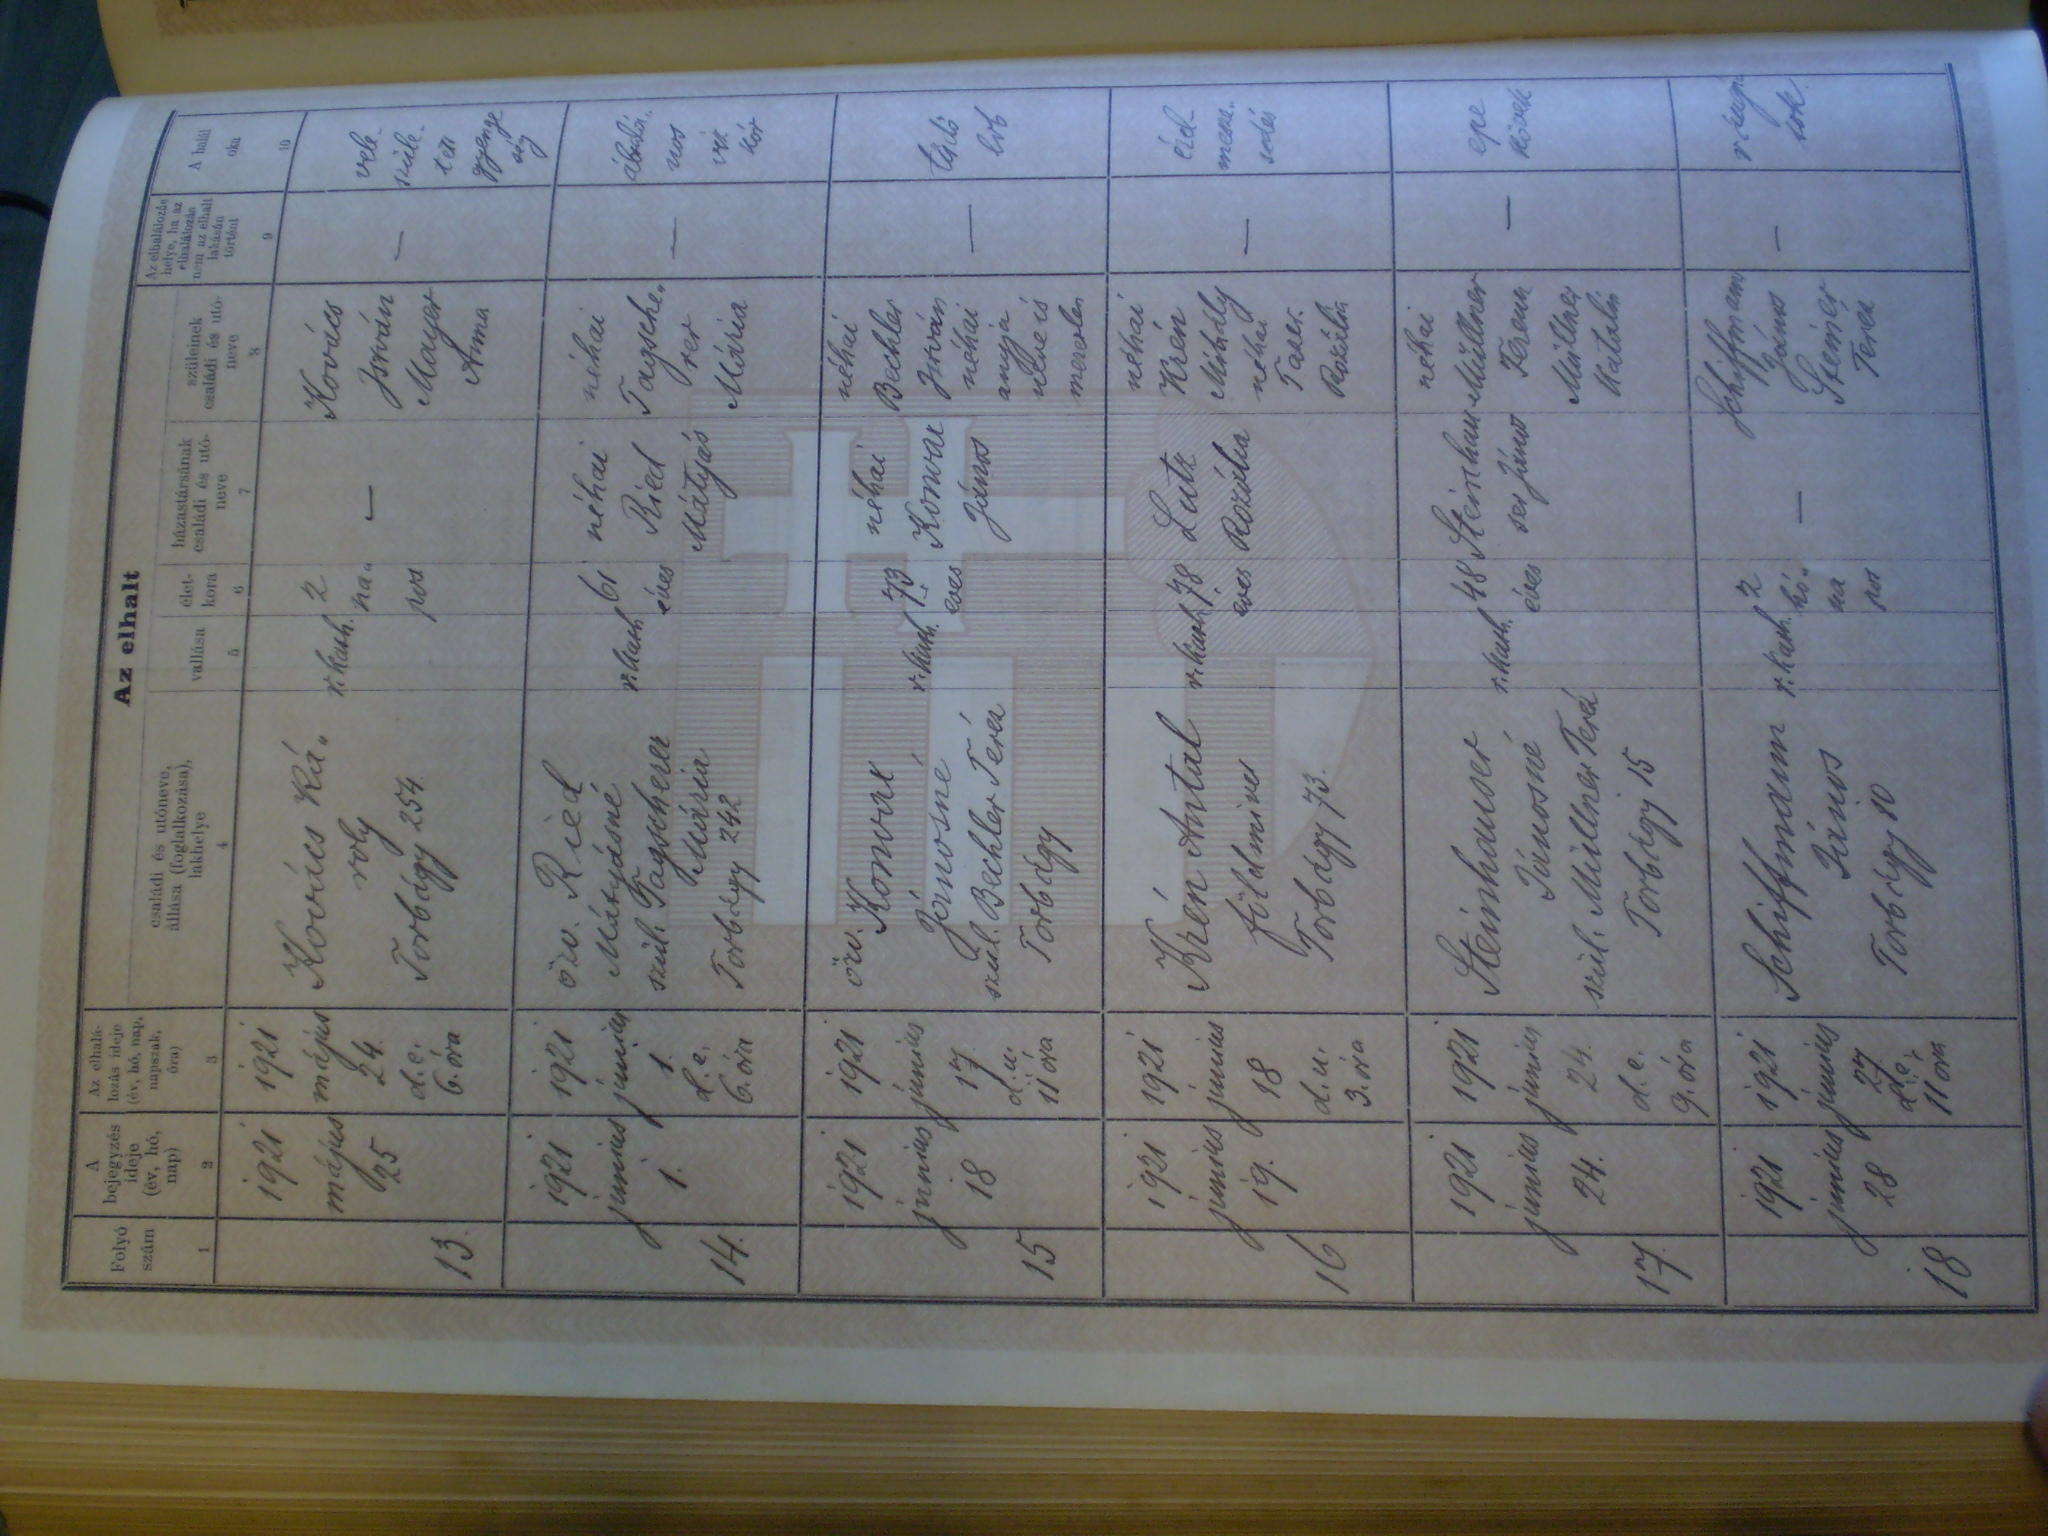 Az elhalt
Folyó szám
A bejegyzés ideje (év, hó, nap)
Az elhalálozás ideje (év, hó, nap, napszak, óra)
családi és utóneve, állása (foglalkozása), lakhelye
vallása
életkora
házastársának családi és utóneve
szüleinek családi és utóneve
Az elhalálozás helye, ha az elhalálozás nem az elhalt lakásán történt
A halál oka
1
2
3
4
5
6
7
8
9
10
13.
1921
május
25
1921
május
24.
d.e.
6. óra
Kovács Ká„
roly
Torbágy 254.
r. kath.
2
na„
pos
—
Kovács
István
Mayer
Anna
—
vele-
szüle-
tett
gyenge
ség
14.
1921
junius
1.
1921
junius
1.
d.e.
6. óra
özv. Ried
Mátyásné
szül. Tagscherer
Mária
Torbágy 242
r. kath
61
éves
néhai
Ried
Mátyás
néhai
Tagsche„
rer
Mária
—
kór
15
1921
junius
18
1921
június
17.
d.u.
11 óra
özv.
Jánosné
szül. Bechler Teréz
Torbágy
r. kath.
73
éves
néhai
János
néhai
Bechler
István
néhai
anyja
neve is
meretlen
—
16
1921
junius
19.
1921
junius
18
d.u.
3. óra
Krén Antal
földmives
Torbágy 73.
r. kath
78
éves
Lutz
Rozália
néhai
Krén
Mihály
néhai
Rozália
—
érel-
mesze„
sedés
17.
1921
június
24.
1921
június
24.
d.e.
9. óra
Steinhauser
Jánosné
szül. Müllner Teréz
Torbágy 15
r. kath.
48
éves
Steinhau„
ser János
néhai
Müllner
Ferenc
Müllner
Katalin
—
epe
kövek
18
1921
június
28
1921
június
27
d.e.
11 óra
Schiffmann
János
Torbágy 80
r. kath.
2
hó„
na
pos
—
Schiffmann
János
Steiner
Teréz
—